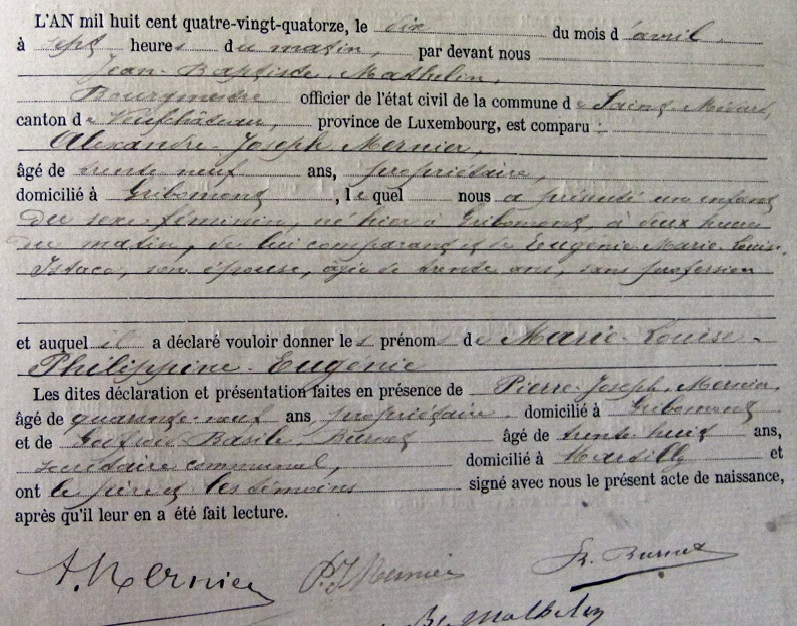 L'AN mil huit cent quatre-vingt-quatorze, le dix du mois d'avril,
à sept heures du matin, par devant nous
Jean-Baptiste Mathelin,
Bourgmestre officier de l'état civil de la commune de Saint-Médard,
canton de Neufchâteau, province de Luxembourg, est comparu :
Alexandre-Joseph Mernier,
âgé de trente neuf ans, propriétaire,
domicilié à Gribomont, lequel nous a présenté un enfant
du sexe féminin, né hier à Gribomont, à deux heures
du matin, de lui comparant et de Eugénie-Marie-Louise
Istace, son épouse, âgée de trente ans, sans profession
et auquel il a déclaré vouloir donner les prénoms de Marie-Louise-
Philippine-Eugénie
Les dites déclaration et présentation faites en présence de Pierre-Joseph Mernier,
âgé de quarante-neuf ans, propriétaire, domicilié à Gribomont
et de Basile Burnet âgé de trente huit ans,
secrétaire communal, domicilié à et
ont le père et les témoins signé avec nous le présent acte de naissance,
après qu'il leur en a été fait lecture.
A. Mernier P. J. Mernier Burnet
Mathelin